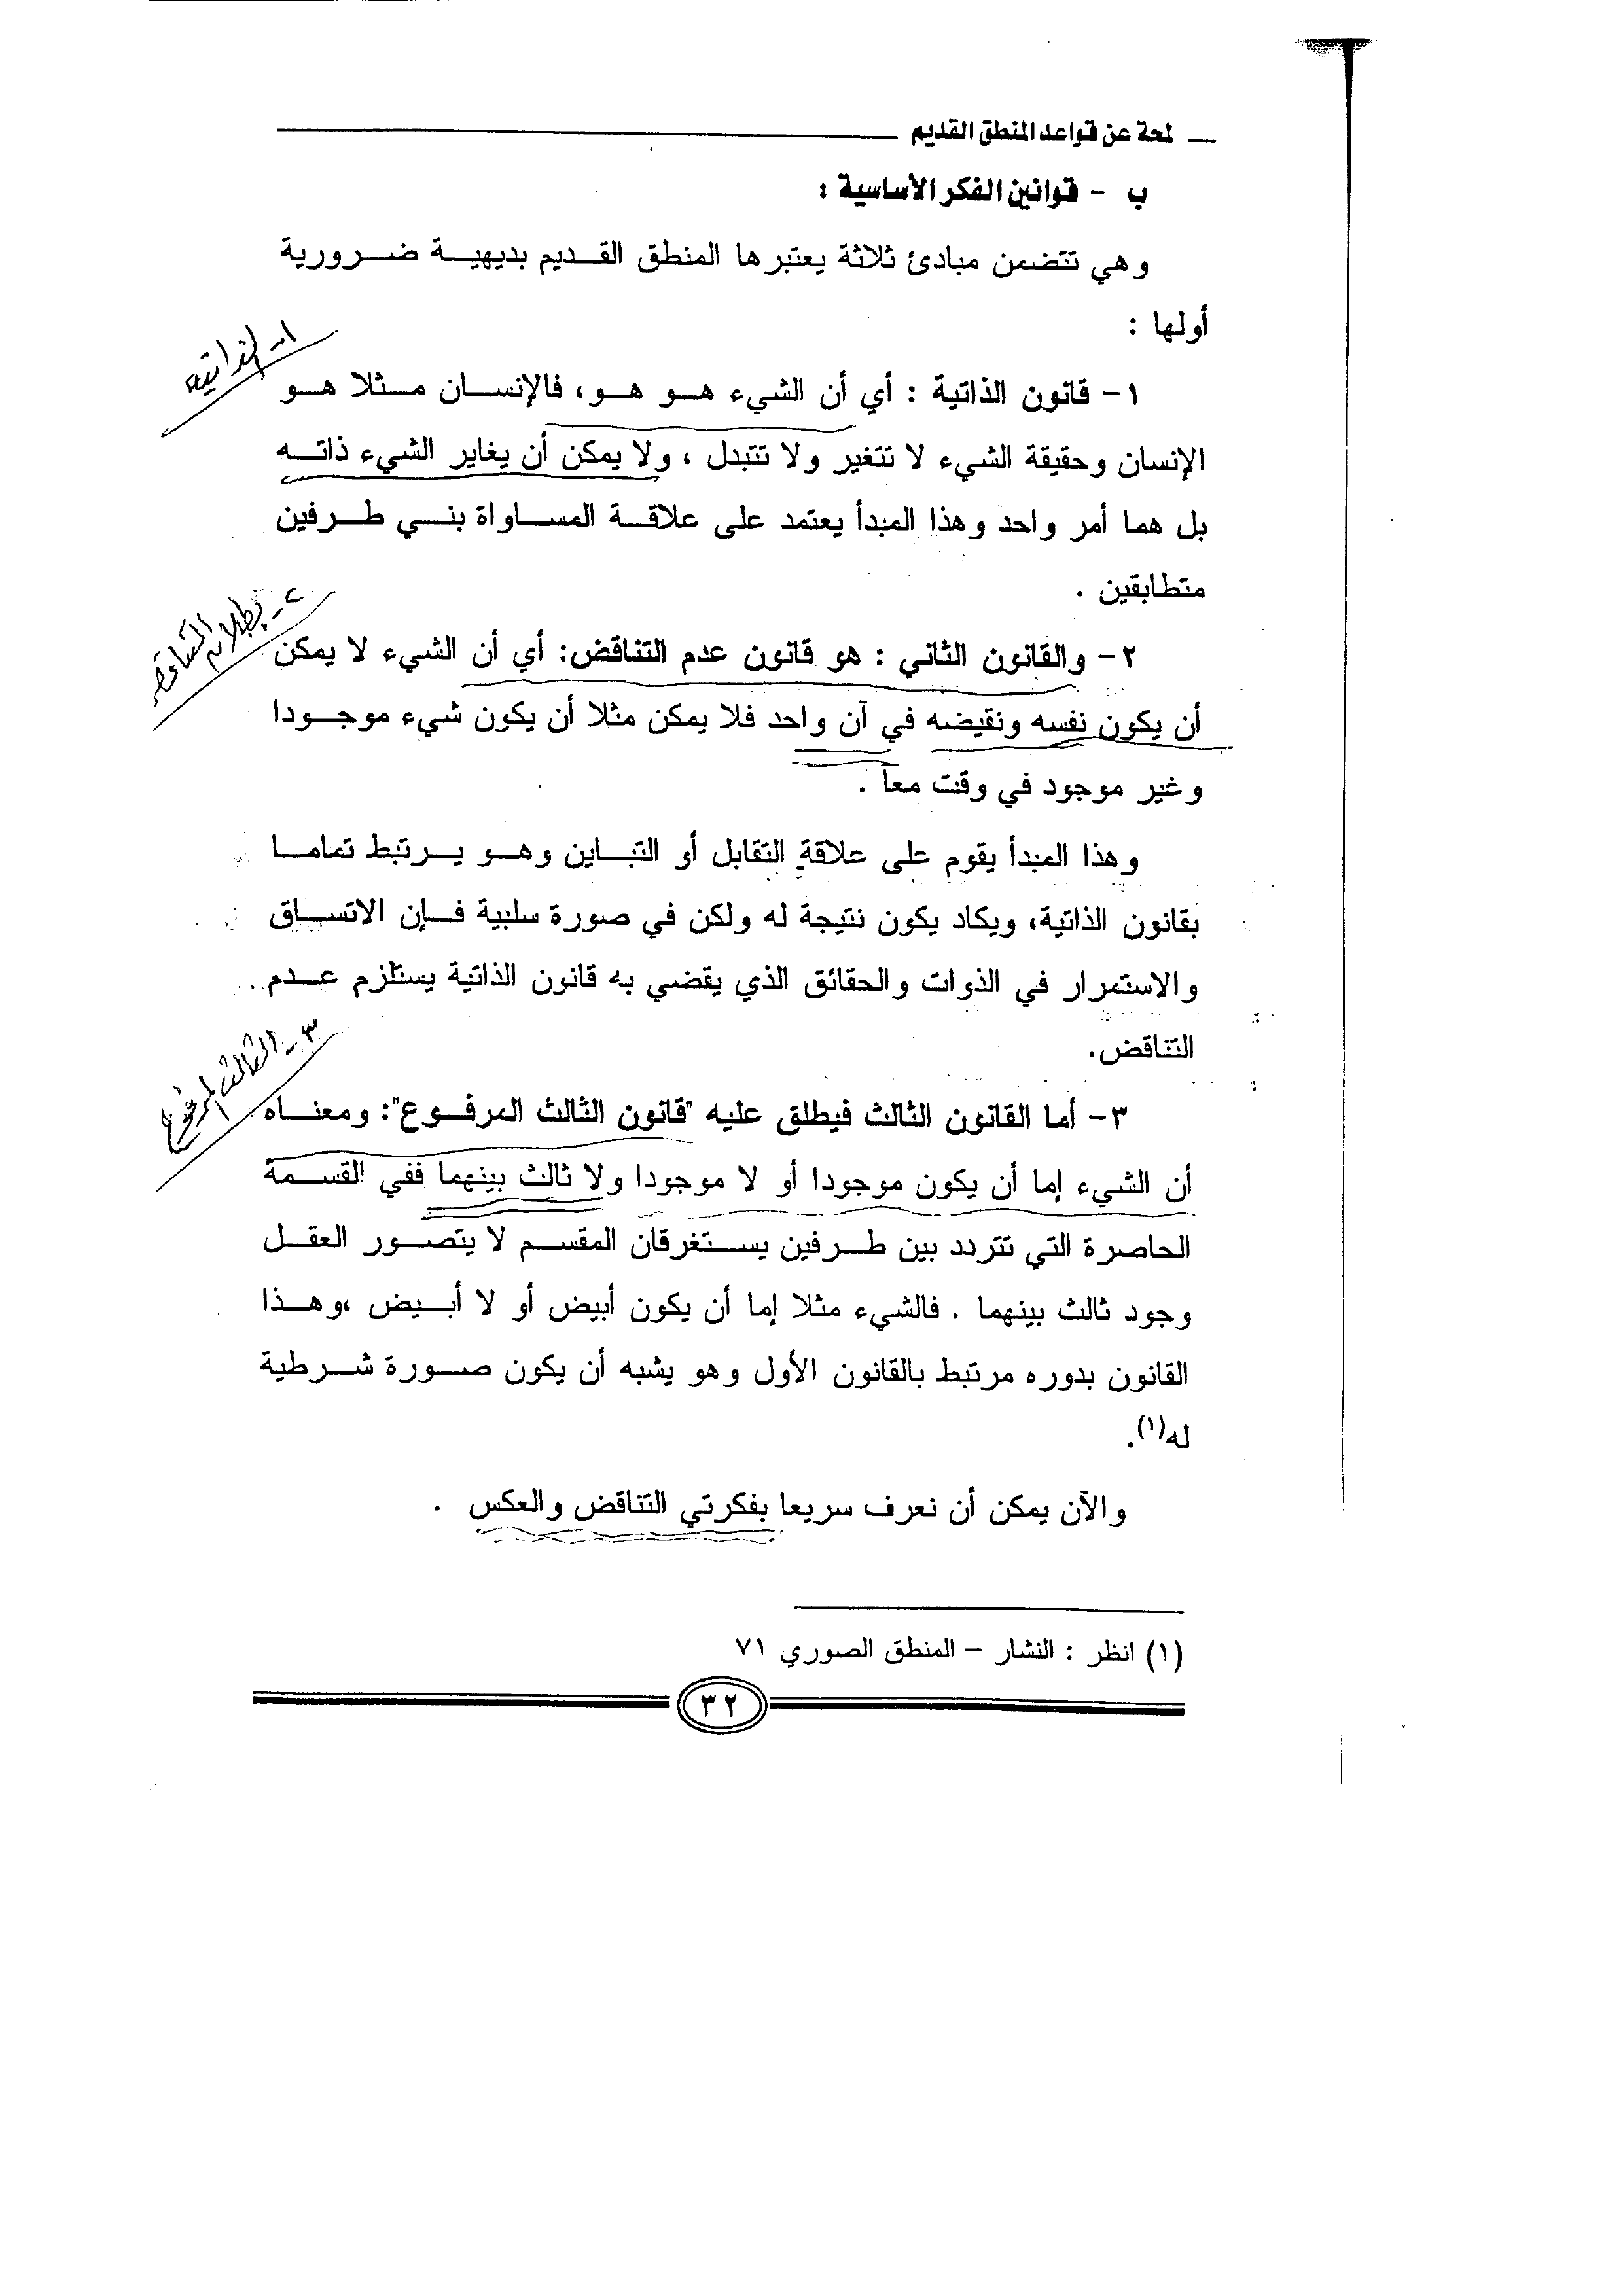 لمحة عن قواعد المنطق القديم
ب - قوانين الفكر الأساسية :
وهي تتضمن مبادئ ثلاثة يعتبرها المنطق القديم بديهية ضرورية
أولها :
١- الذاتية
١- قانون الذاتية : أي أن الشيء هو هو، فالإنسان مثلا هو
الإنسان وحقيقة الشيء لا تتغير ولا تتبدل ، ولا يمكن أن يغاير الشيء ذاته
بل هما أمر واحد وهذا المبدأ يعتمد على علاقة المساواة بني طرفين
متطابقين .
٢- بطلان التناقض
٢- والقانون الثاني : هو قانون عدم التناقض: أي أن الشيء لا يمكن
أن يكون نفسه ونقيضه في آن واحد فلا يمكن مثلا أن يكون شيء موجودا
وغير موجود في وقت معاً .
وهذا المبدأ يقوم على علاقة التقابل أو التباين وهو يرتبط تماما
بقانون الذاتية، ويكاد يكون نتيجة له ولكن في صورة سلبية فإن الاتساق
والاستمرار في الذوات والحقائق الذي يقضي به قانون الذاتية يستلزم عدم
التناقض.
٣- الثالث المرفوع
٣- أما القانون الثالث فيطلق عليه "قانون الثالث المرفوع": ومعناه
أن الشيء إما أن يكون موجودا أو لا موجودا ولا ثالث بينهما ففي القسمة
الحاصرة التي تتردد بين طرفين يستغرقان المقسم لا يتصور العقل
وجود ثالث بينهما . فالشيء مثلا إما أن يكون أبيض أو لا أبيض ،وهذا
القانون بدوره مرتبط بالقانون الأول وهو يشبه أن يكون صورة شرطية
له(١).
والآن يمكن أن نعرف سريعا بفكرتي التناقض والعكس .
(١) انظر : النشار - المنطق الصوري ٧١
٣٢